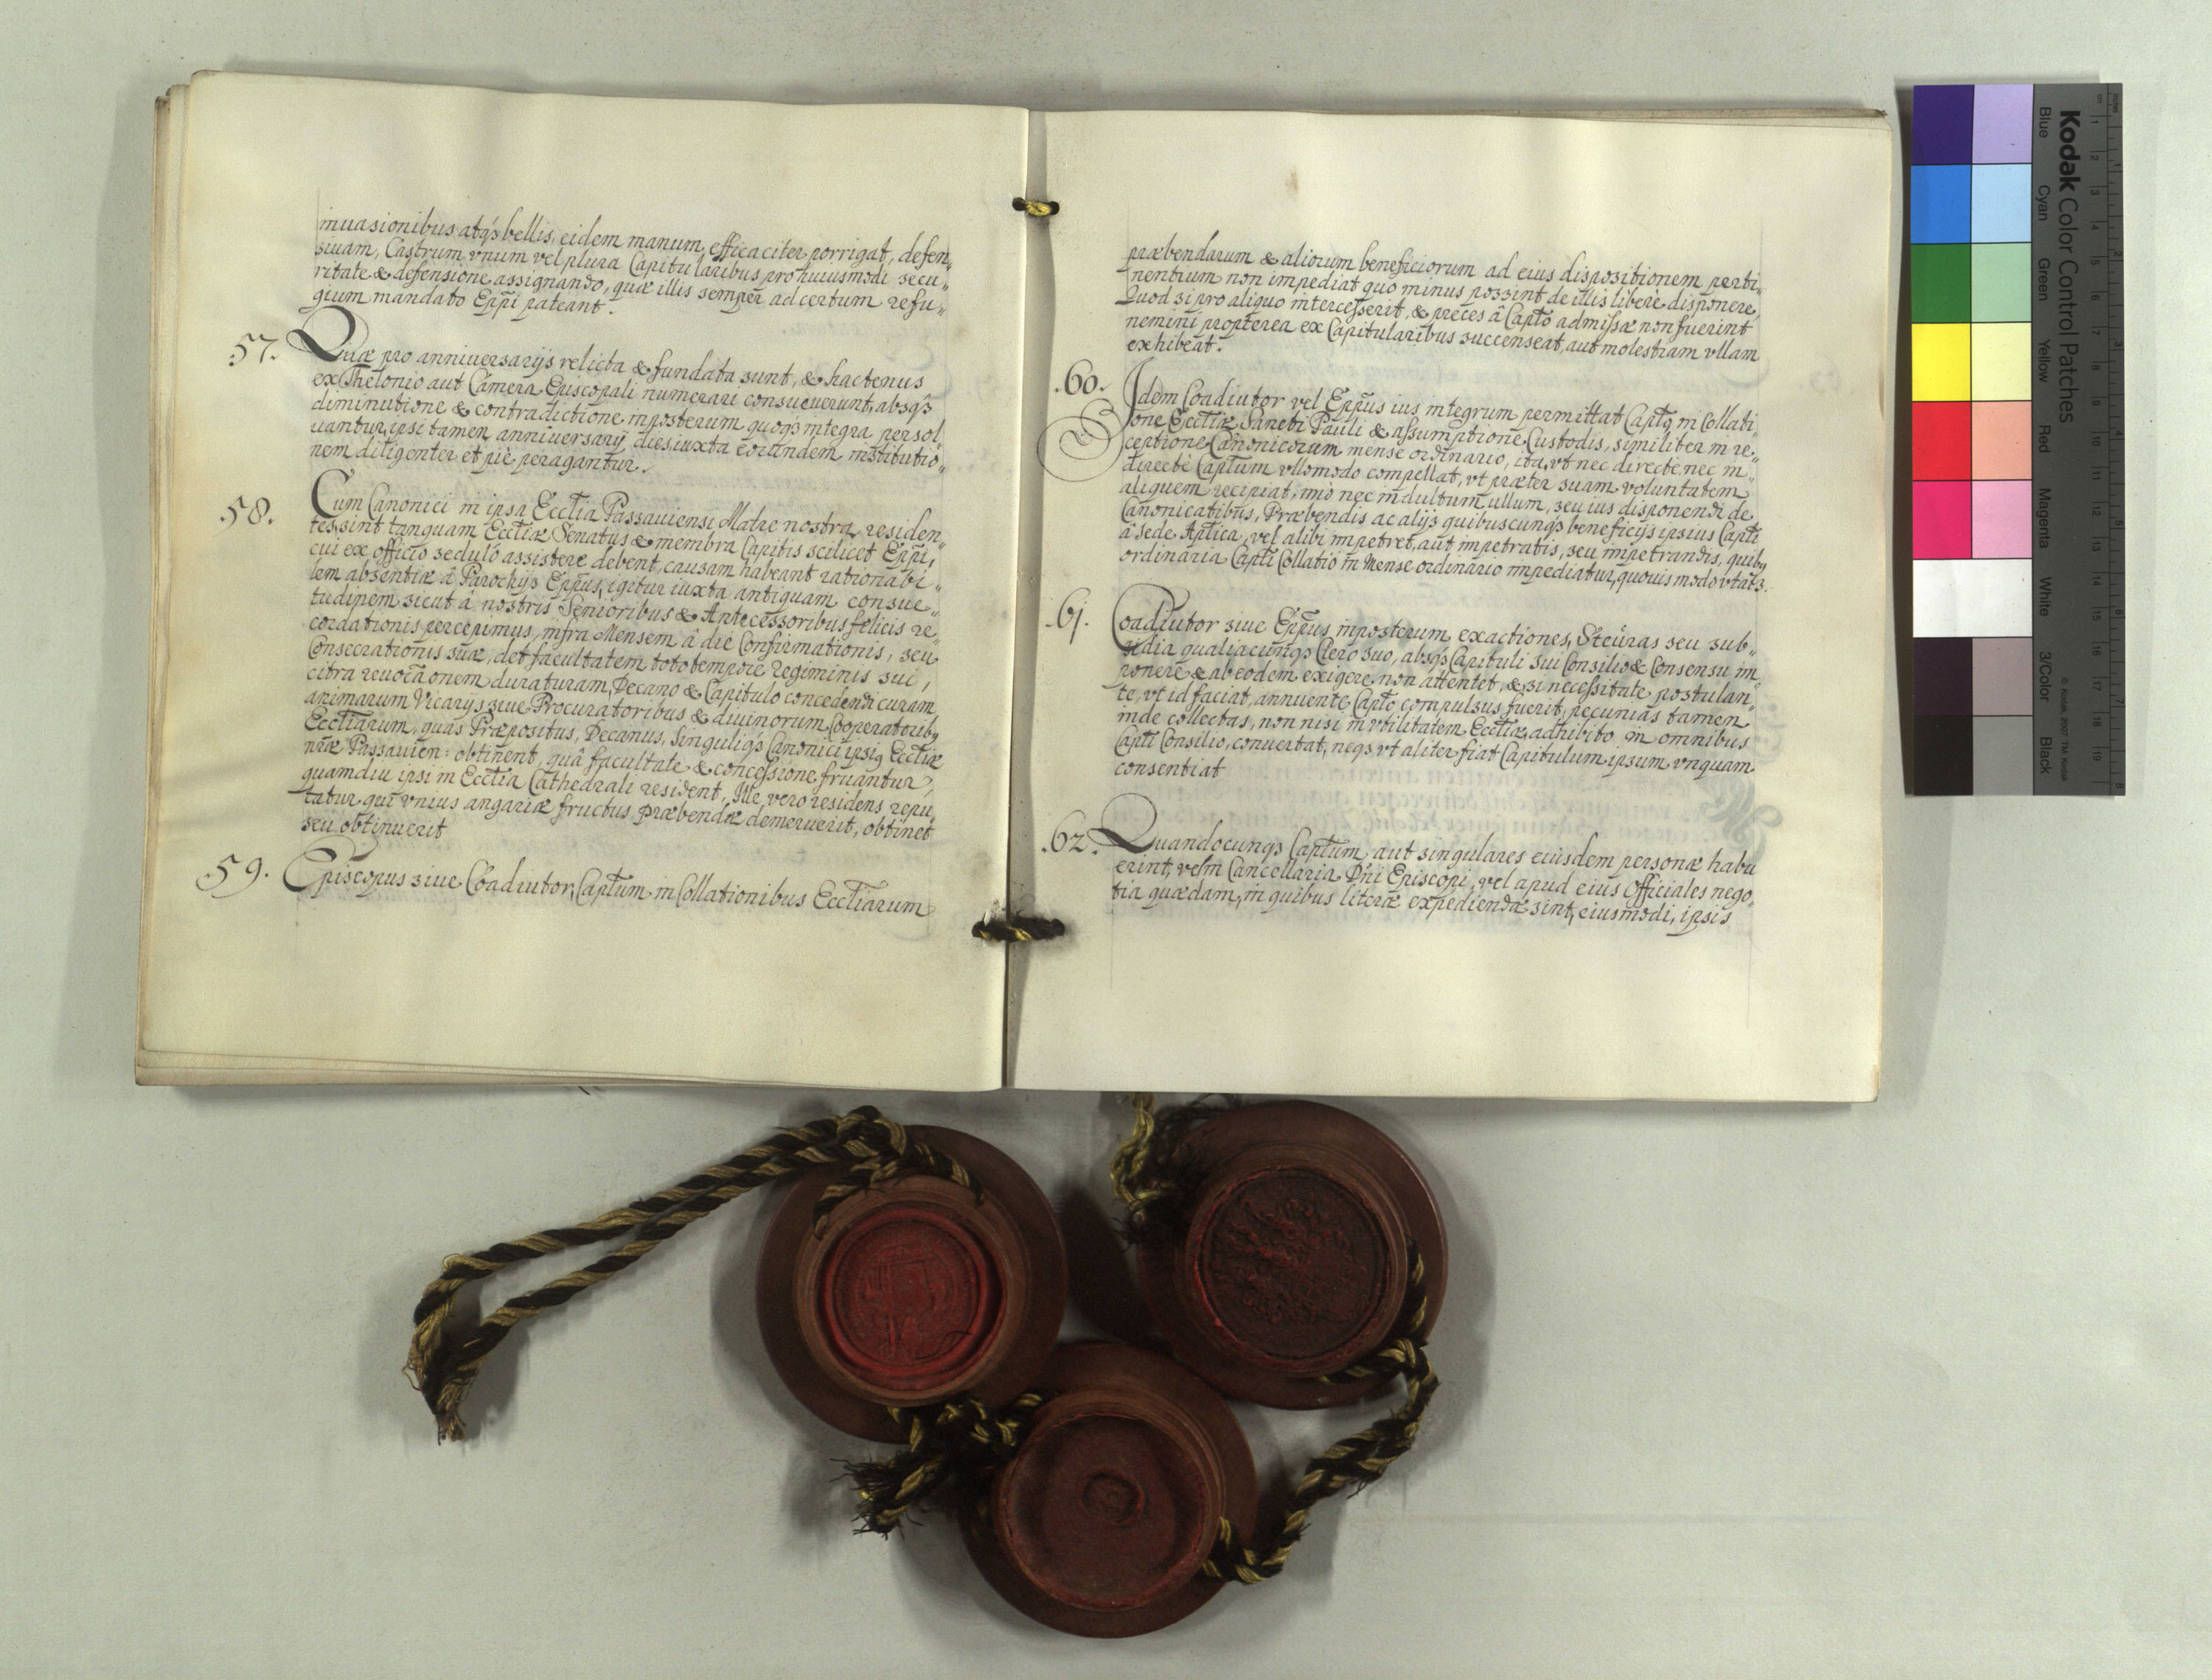 inuasionibus atqз bellis, eidem manum efficaciter porrigat, defen„
siuam, Castrum vnum vel plura Capitularibus pro huiusmodi secu„
ritate & defensione assignando, quæ illis semper ad certum refu„
gium mandato Epp̃i pateant.
57. Quæ pro anniuersarijs relicta & fundata sunt, & hactenus
ex Thelonio aut Camera Episcopali numerari consueuerunt, absqз
diminutione & contradictione inposterum quoqз integra persol„
uantur, ipsi tamen anniuersarij dies iuxta eorundem institutio„
nem diligenter et piè peragantur.
58. Cum Canonici in ipsa Eccl̃ia Passauiensi Matre nostra residen„
tes, sint tanquam Eccl̃iæ Senatus & membra Capitis scilicet Epp̃i,
cui ex officio seduló assistere debent, causam habeant rationabi„
lem absentiæ â Parochijs Epp̃us, igitur iuxta antiquam consue„
tudinem sicut â nostris Senioribus & Antecessoribus felicis re„
cordationis percepimus, infra Mensem â die Confirmationis, seu
Consecrationis suæ, det facultatem toto tempore regiminis sui,
citra reuocãonem duraturam, Decano & Capitulo concedendi curam
animarum Vicarijs siue Procuratoribus & diuinorum Cooperatoribꝫ
Eccl̃iarum, quas Præpositus, Decanus, Singuliqз Canonici ipsiꝰ Eccl̃iæ
nr̃æ Passauien: obtinent, quâ facultate & concessione fruantur,
quamdiu ipsi in Eccl̃ia Cathedrali resident, Ille vero residens repu„
tatur qui vnius angariæ fructus Præbendæ demeruerit, obtinet
seu obtinuerit
59. Episcopus siue Coadiutor, Capt̃um in Collationibus Eccl̃iarum
præbendarum & aliorum beneficiorum ad eius dispositionem perti„
nentium non impediat quo minus possint de illis liberè disponere,
Quod si pro aliquo intercesserit, & preces â Capt̃o admissæ non fuerint
nemini propterea ex Capitularibus succenseat, aut molestiam vllam
exhibeat.
.60. Idem Coadiutor vel Epp̃us ius integrum permittat Capt̃o in Collati„
one Eccl̃iæ Sancti Pauli & assumptione Custodis, similiter in re„
ceptione Canonicorum mense ordinario, ita, vt nec directè nec in„
directè Capt̃um vllomodo compellat, vt præter suam voluntatem
aliquem recipiat, imò nec indultum ullum, seu ius disponendi de
Canonicatibus, Præbendis ac alijs quibuscunqз beneficijs ipsius Capt̃i
â Sede Ap̃lica, vel alibi impetret, aut impetratis, seu impetrandis, quibꝫ
ordinaria Capt̃i Collatio in Mense ordinario impediatur, quouis modo vtat̃ᷣ.
.61. Coadiutor siue Epp̃us inposterum exactiones, Steüras seu sub„
sidia qualiacunqз Clero suo, absqз Capituli sui Consilio & Consensu im„
ponere & ab eodem exigere non attentet, & si necessitate postulan„
te, vt id faciat, annuente Capt̃o compulsus fuerit, pecunias tamen
inde collectas, non nisi in vtilitatem Eccl̃iæ, adhibito in omnibus
Capt̃i Consilio, conuertat, neqз vt aliter fiat Capitulum ipsum vnquam
consentiat
.62. Quandocunqз Capt̃um aut singulares eiusdem personæ habu
erint, vel in Cancellaria Dñi Episcopi, vel apud eius Officiales nego„
tia quædam, in quibus literæ expediendæ sint, eiusmodi, ipsis
Kodak Color Control Patches
Blue Cyan Green Yellow Red Magenta White 3/Color Black
© Kodak 2007 TM: Kodak
cm 1 2 3 4 5 6 7 8 9 10 11 12 13 14 15 16 17 18 19